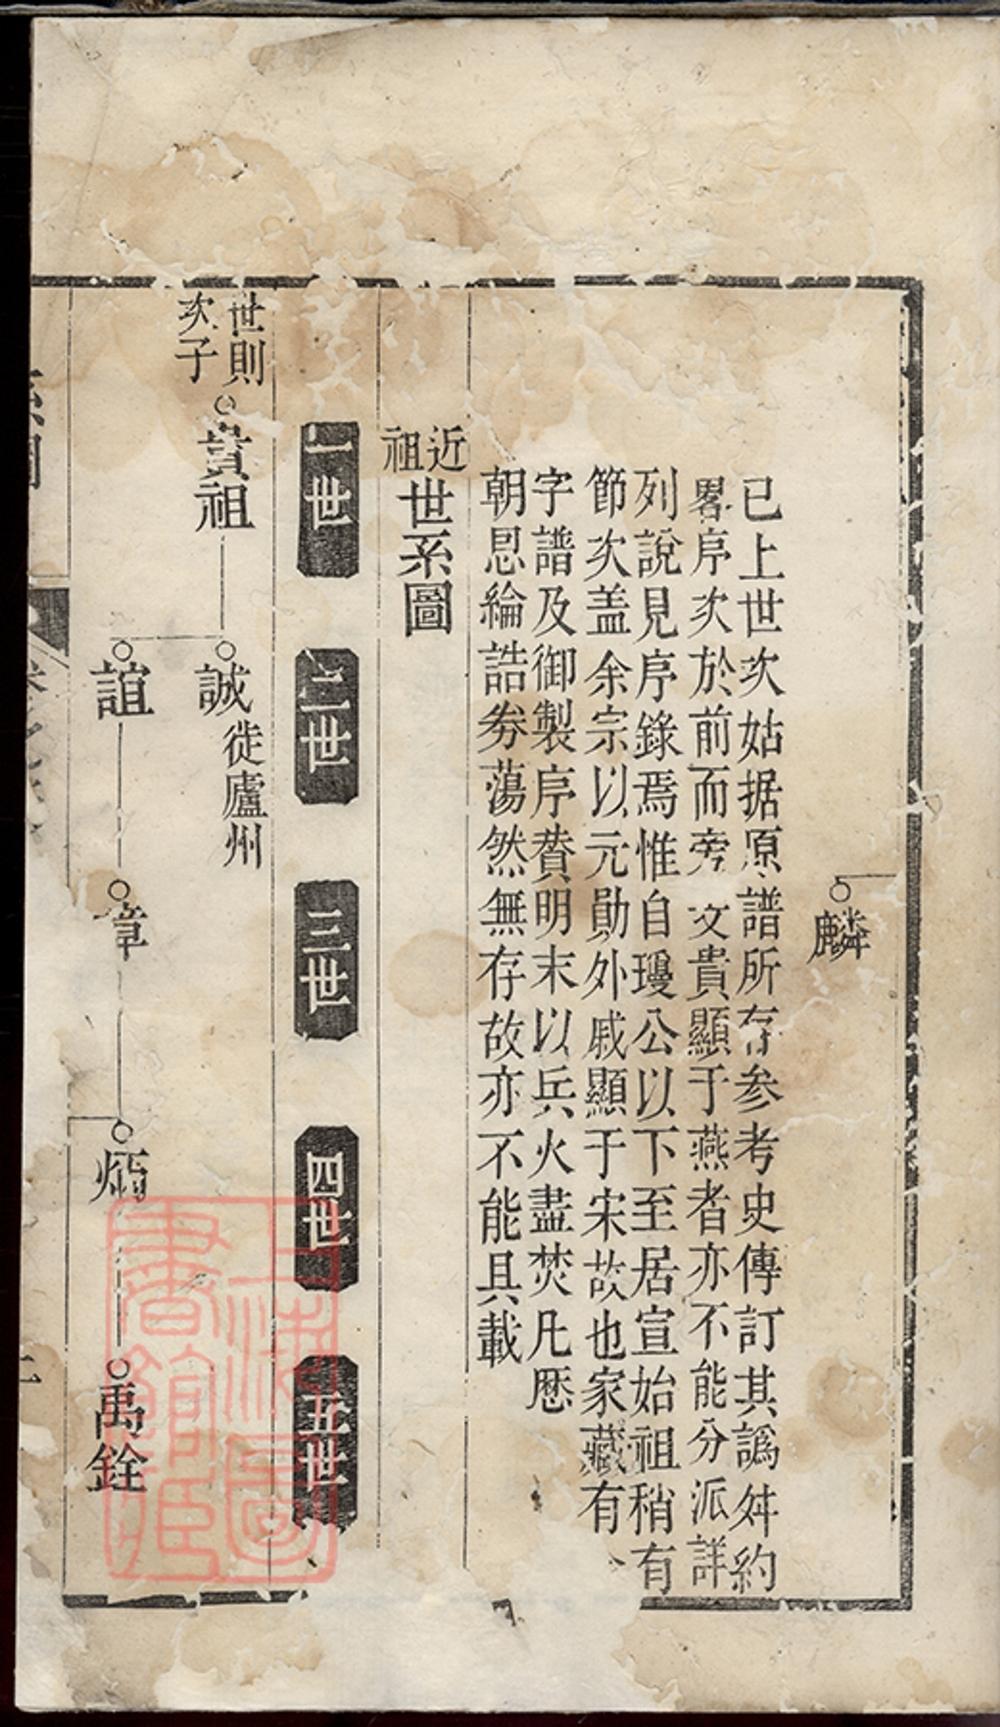 麟
已上世次姑据原譜所存参考史傳訂其譌舛約
畧序次於前而旁文貴顯于燕者亦不能分派詳
列說見序錄焉惟自瓊公以下至居宣始祖稍有
節次盖余宗以元勛外戚顯于宋故也家藏有
字譜及御製序賛明末以兵火盡焚凡歷
朝恩綸誥券蕩然無存故亦不能具載
近祖世系圖
一世 二世 三世 四世 五世
世則次子 貴祖 誠 徙廬州
誼 章 炳 禹銓
上海圖書館藏